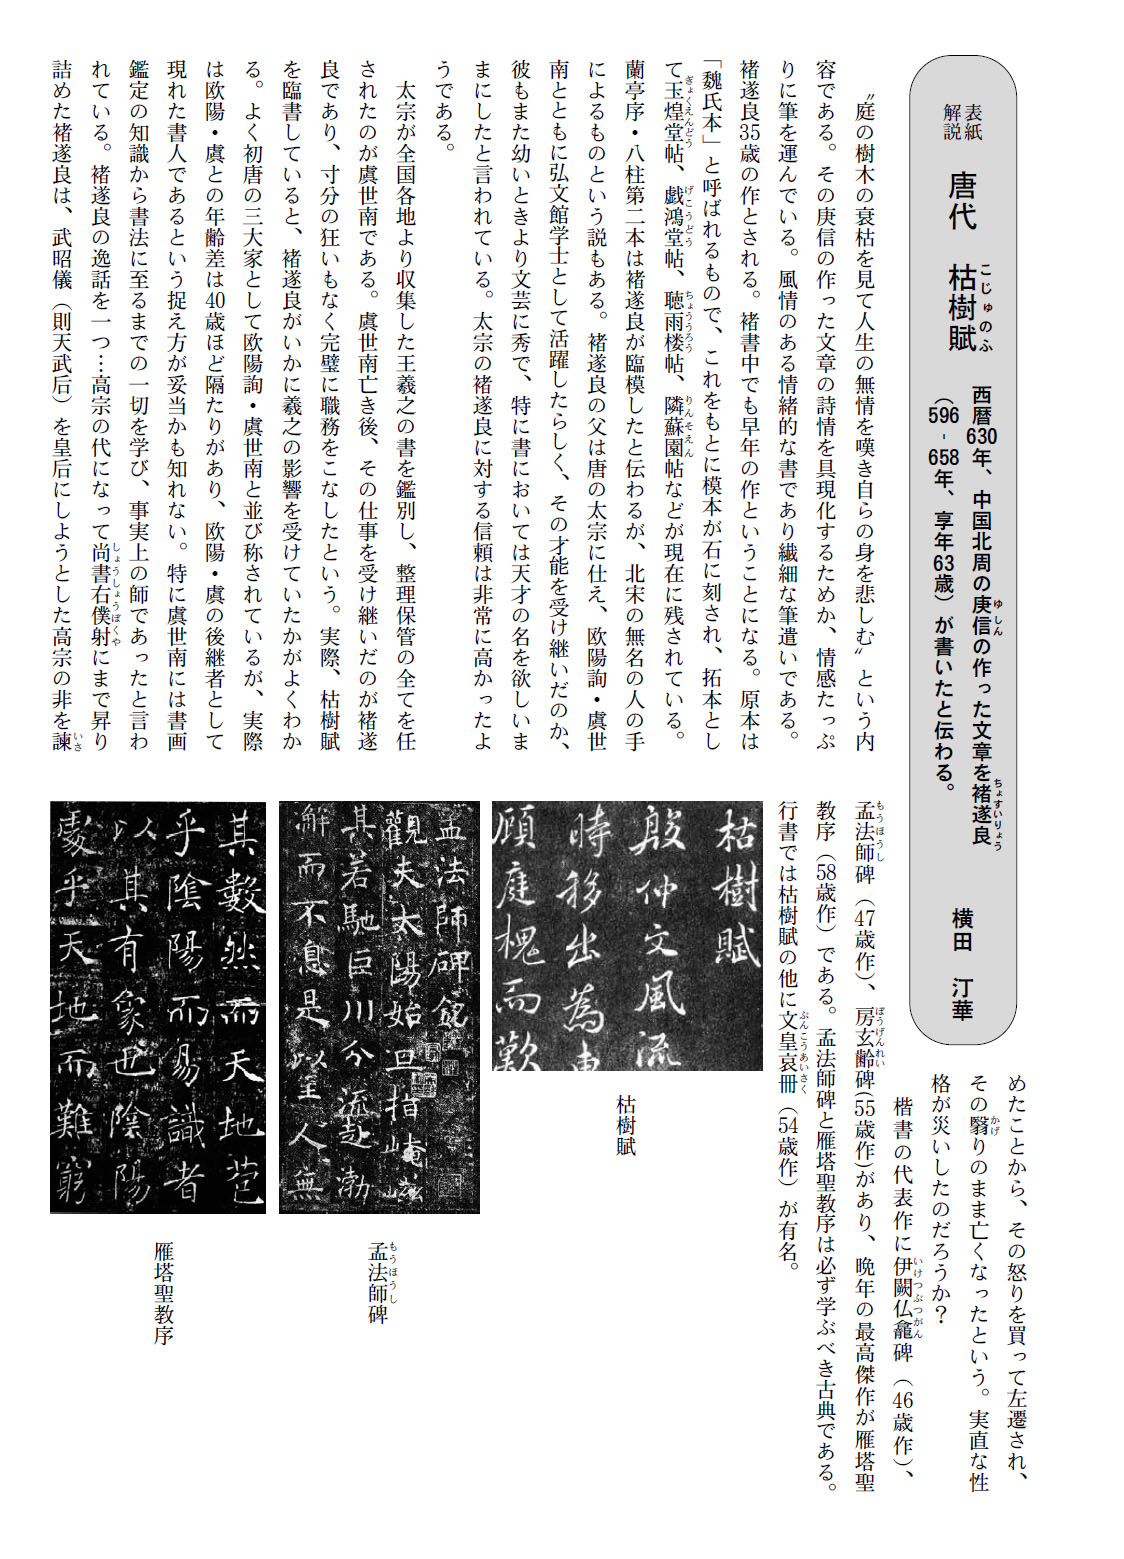 表紙解説
唐代　枯樹賦
こじゅのふ
西暦630年、中国北周の庾信の作った文章を褚遂良
ゆしん
ちょすいりょう
（596-658年、享年63歳）が書いたと伝わる。
横田　汀華
〝庭の樹木の衰枯を見て人生の無情を嘆き自らの身を悲しむ〟という内
容である。その庾信の作った文章の詩情を具現化するためか、情感たっぷ
りに筆を運んでいる。風情のある情緒的な書であり繊細な筆遣いである。
褚遂良35歳の作とされる。褚書中でも早年の作ということになる。原本は
「魏氏本」と呼ばれるもので、これをもとに模本が石に刻され、拓本とし
て玉煌堂帖、戯鴻堂帖、聴雨楼帖、隣蘇園帖などが現在に残されている。
ぎょくえんどう
げこうどう
ちょううろう
りんそえん
蘭亭序・八柱第二本は褚遂良が臨模したと伝わるが、北宋の無名の人の手
によるものという説もある。褚遂良の父は唐の太宗に仕え、欧陽詢・虞世
南とともに弘文館学士として活躍したらしく、その才能を受け継いだのか、
彼もまた幼いときより文芸に秀で、特に書においては天才の名を欲しいま
まにしたと言われている。太宗の褚遂良に対する信頼は非常に高かったよ
うである。
太宗が全国各地より収集した王羲之の書を鑑別し、整理保管の全てを任
されたのが虞世南である。虞世南亡き後、その仕事を受け継いだのが褚遂
良であり、寸分の狂いもなく完璧に職務をこなしたという。実際、枯樹賦
を臨書していると、褚遂良がいかに羲之の影響を受けていたかがよくわか
る。よく初唐の三大家として欧陽詢・虞世南と並び称されているが、実際
は欧陽・虞との年齢差は40歳ほど隔たりがあり、欧陽・虞の後継者として
現れた書人であるという捉え方が妥当かも知れない。特に虞世南には書画
鑑定の知識から書法に至るまでの一切を学び、事実上の師であったと言わ
れている。褚遂良の逸話を一つ…高宗の代になって尚書右僕射にまで昇り
しょうしょうぼくや
詰めた褚遂良は、武昭儀（則天武后）を皇后にしようとした高宗の非を諫
いさ
めたことから、その怒りを買って左遷され、
その翳りのまま亡くなったという。実直な性
かげ
格が災いしたのだろうか？
楷書の代表作に伊闕仏龕碑（46歳作）、
いけつぶつがん
孟法師碑（47歳作）、房玄齢碑(55歳作)があり、晩年の最高傑作が雁塔聖
もうほうし
ぼうげんれい
教序（58歳作）である。孟法師碑と雁塔聖教序は必ず学ぶべき古典である。
行書では枯樹賦の他に文皇哀冊（54歳作）が有名。
ぶんこうあいさく
枯樹賦
殷仲文風流
時移出為東
顧庭槐而歎
枯樹賦
孟法師碑銘
觀夫太陽始旦指崦嵫
其若馳巨川分流赴渤
解而不息是以至人無
孟法師碑
もうほうし
其數然而天地苞
乎陰陽而易識者
以其有象也陰陽
處乎天地而難窮
雁塔聖教序